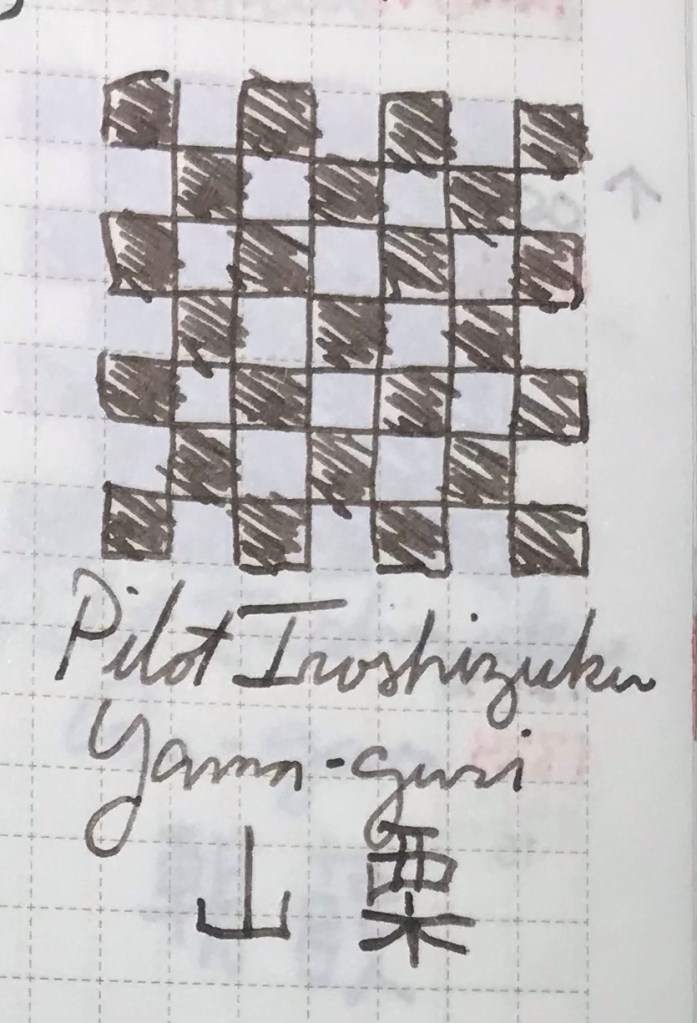 Pilot Iroshizuku
Yama-guri
山栗